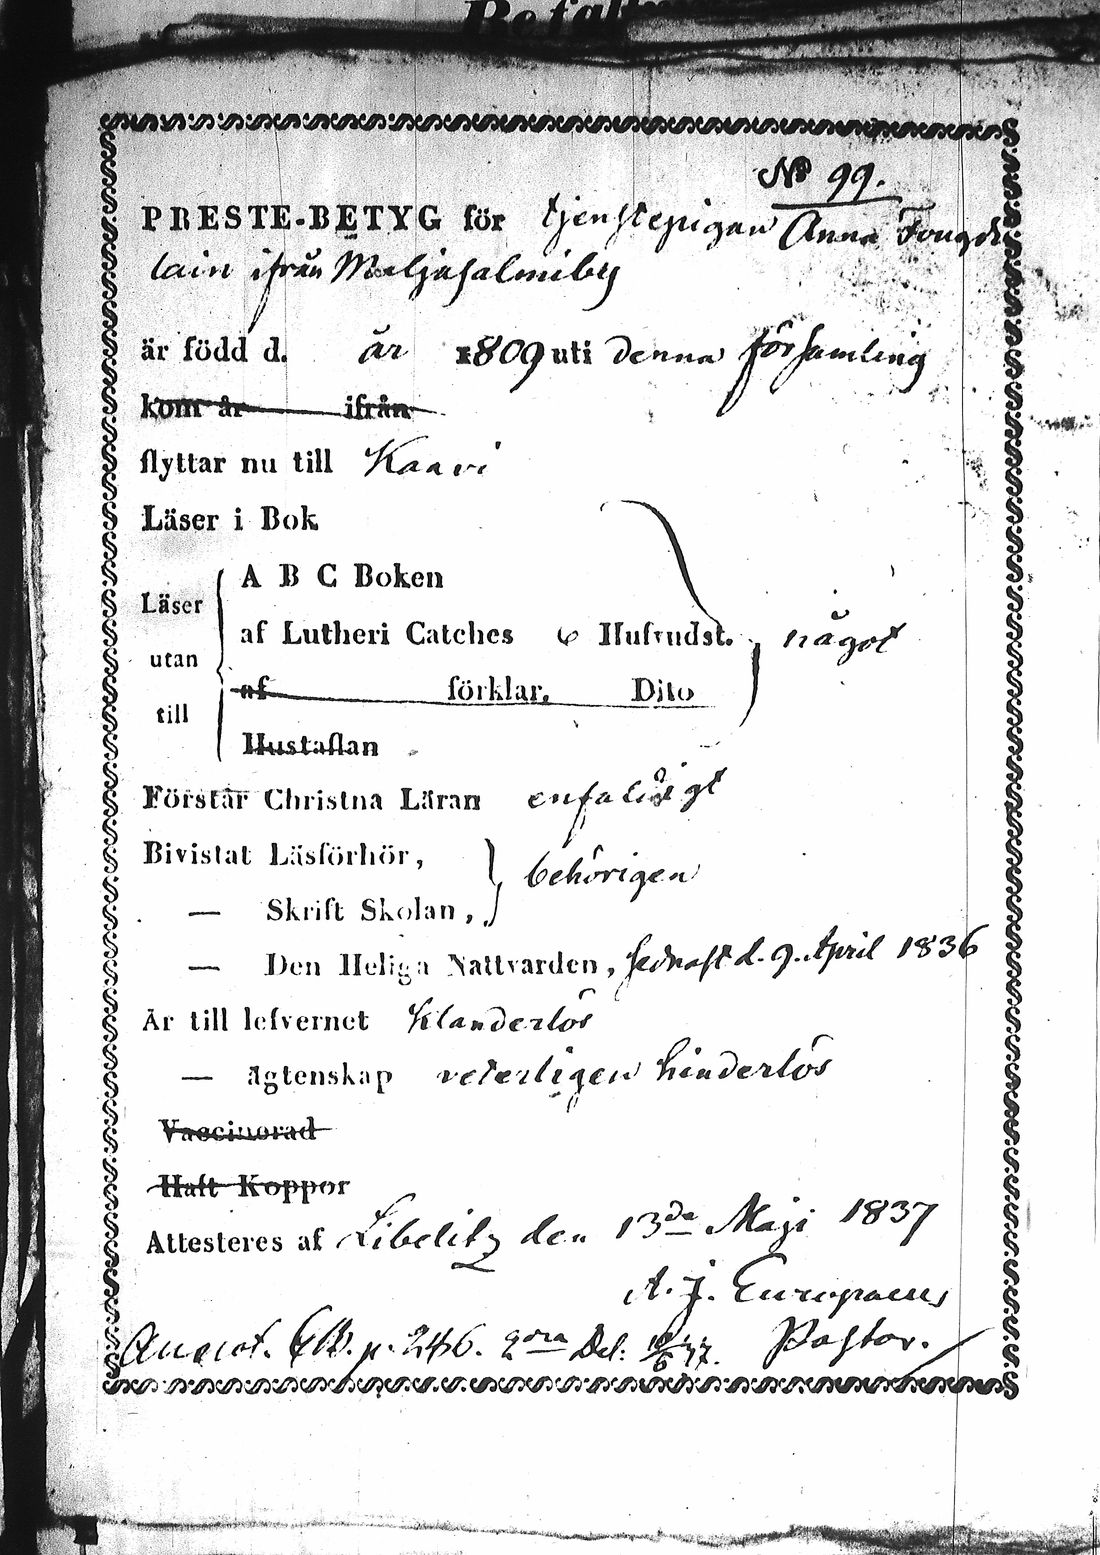 No 99.
PRESTE-BETYG för tjenstepigan Anna Tougde
lain ifrån Maljasalmiby
är född d. år 1809 uti denna församling
kom år ifrån
flyttar nu till Kaavi
Läser i Bok
A B C Boken
Läser
af Lutheri Catches 6 Hufvudst. något
utan
af förklar. Dito
till
Hustaflan
Förstår Christna Läran enfaldigt
Bivistat Läsförhör,
behörigen
— Skrift Skolan,
— Den Heliga Nattvarden, sednast d. 9. April 1836
Är till lefvernet Klanderlös
— ägtenskap veterligen hinderlös
Vaccinerad
Haft Koppor
Attesteres af Libelitz den 13de Maji 1837
A. J. Europaeus
Pastor.
Annot. p. 246. 2dra Del: 37.